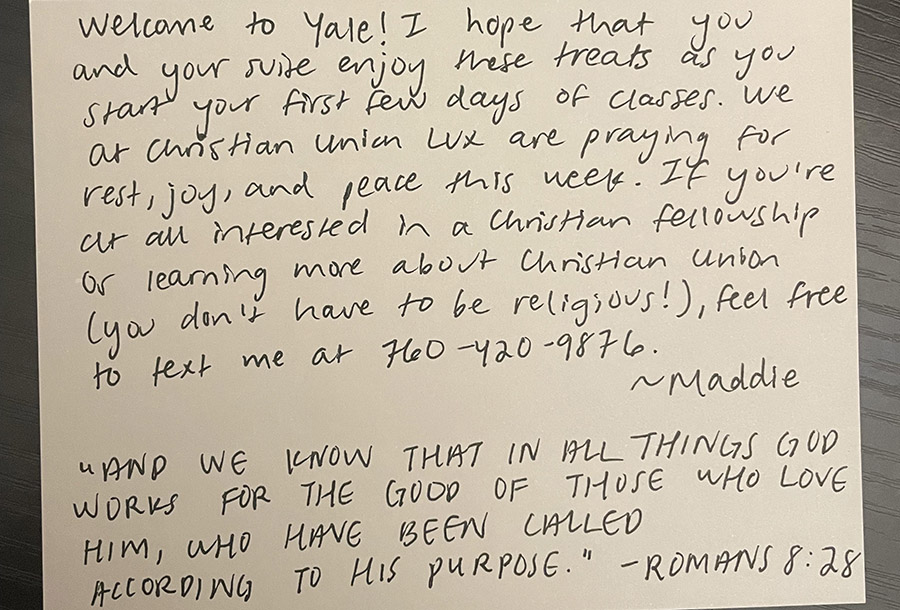 Welcome to Yale! I hope that you
and your suite enjoy these treats as you
start your first few days of classes. We
at Christian Union Lux are praying for
rest, joy, and peace this week. If you're
at all interested in a Christian fellowship
or learning more about Christian Union
(you don't have to be religious!), feel free
to text me at 760-420-9876.
~Maddie
"AND WE KNOW THAT IN ALL THINGS GOD
WORKS FOR THE GOOD OF THOSE WHO LOVE
HIM, WHO HAVE BEEN CALLED
ACCORDING TO HIS PURPOSE." -ROMANS 8:28